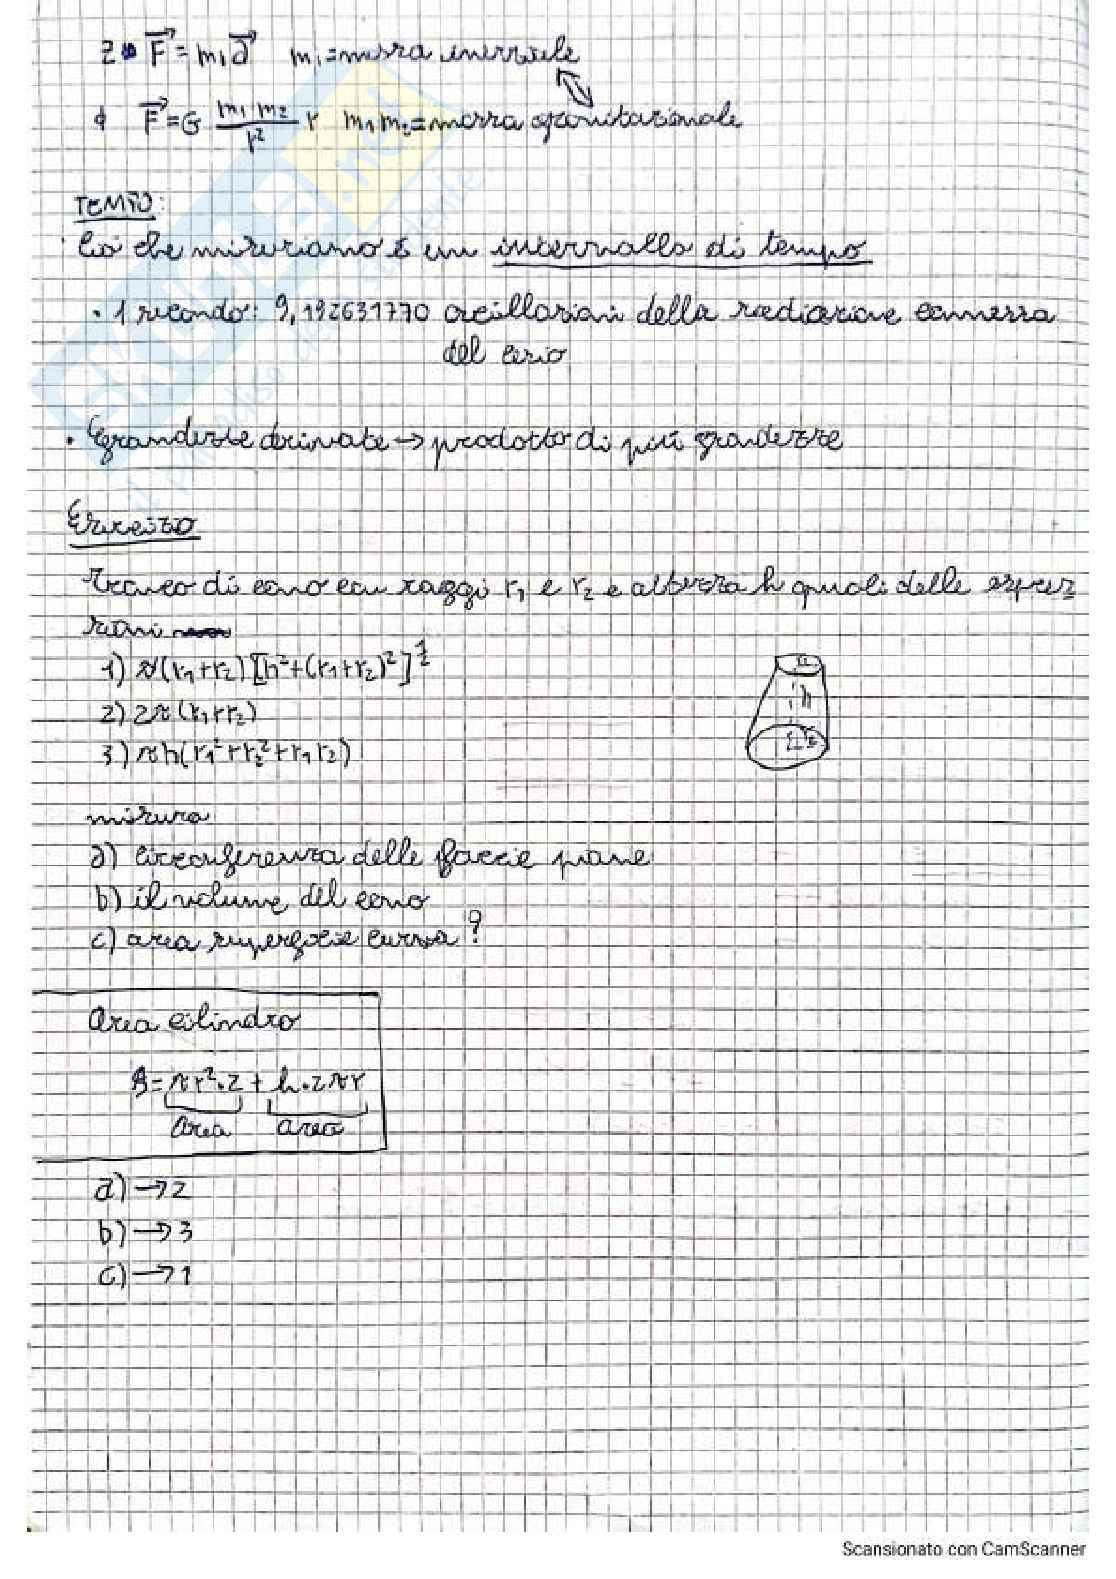 2 F = m₁a m₁=massa inerziale
F=G m₁·m₂/r² r m₁m₂=massa gravitazionale
TEMPO:
Ciò che misuriamo è un intervallo di tempo
• 1 secondo: 9,192631770 oscillazioni della radiazione connessa
del cesio
• Grandezze derivate → prodotto di più grandezze
Esercizio
tronco di cono con raggi r₁ e r₂ e altezza h quali delle espres
sioni
1) π(r₁+r₂)[h²+(r₁+r₂)²]^1/2
2) 2π(r₁+r₂)
3) πh(r₁²+r₂²+r₁r₂)
h
misura
a) circonferenza delle faccie piane
b) il volume del cono
c) area superficie curva?
Area cilindro
A=πr²·2 + h·2πr
area area
a) →2
b) →3
c) →1
SKUOLA.net
Scansionato con CamScanner